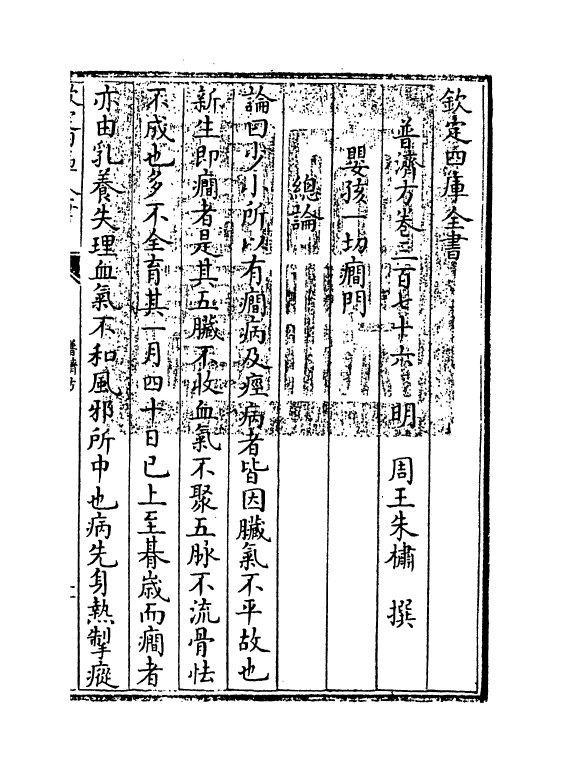 欽定四庫全書
普濟方卷三百七十六　明　周王朱橚　撰
嬰孩一切癇門
總論
論曰少小所以有癇病及痙病者皆因臟氣不平故也
新生即癇者是其五臟不收血氣不聚五脉不流骨怯
不成也多不全育其一月四十日已上至朞歲而癇者
亦由乳養失理血氣不和風邪所中也病先身熱掣瘲